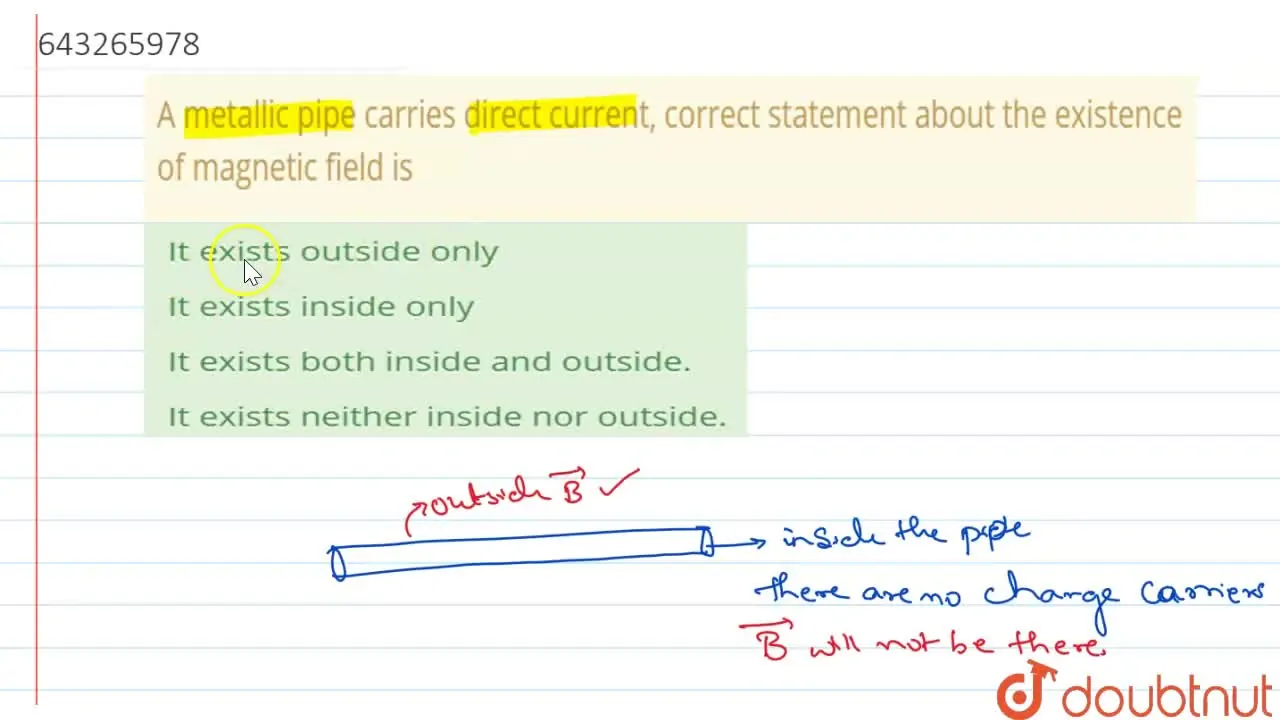 643265978
A metallic pipe carries direct current, correct statement about the existence
of magnetic field is
It exists outside only
It exists inside only
It exists both inside and outside.
It exists neither inside nor outside.
outside B ✓
inside the pipe
there are no charge carriers
B will not be there.
doubtnut